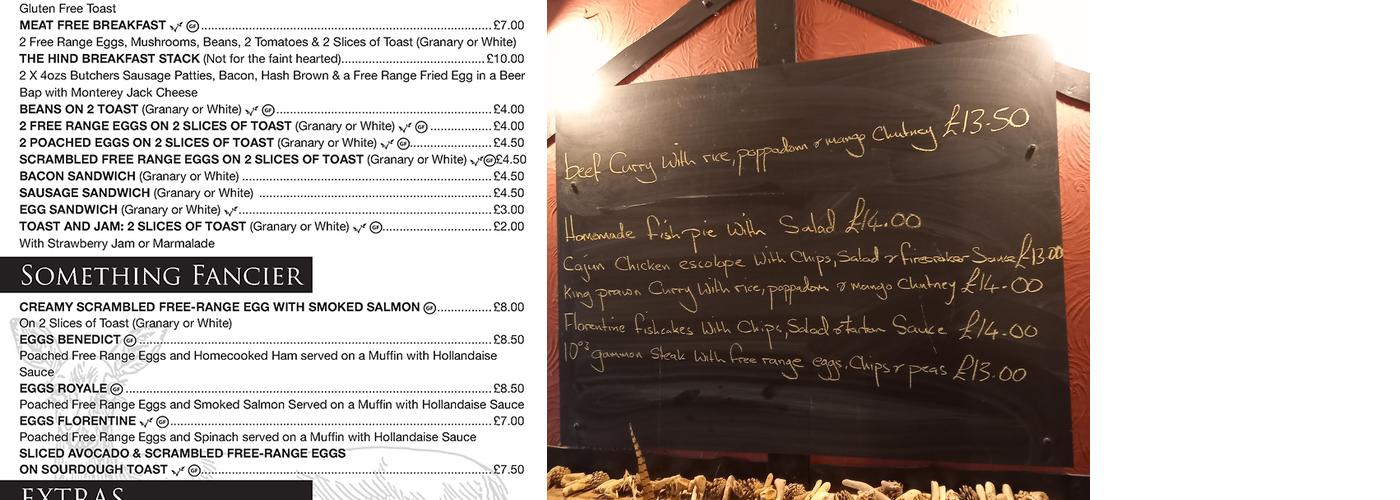 Gluten Free Toast
MEAT FREE BREAKFAST GF £7.00
2 Free Range Eggs, Mushrooms, Beans, 2 Tomatoes & 2 Slices of Toast (Granary or White)
THE HIND BREAKFAST STACK (Not for the faint hearted) £10.00
2 X 4ozs Butchers Sausage Patties, Bacon, Hash Brown & a Free Range Fried Egg in a Beer
Bap with Monterey Jack Cheese
BEANS ON 2 TOAST (Granary or White) GF £4.00
2 FREE RANGE EGGS ON 2 SLICES OF TOAST (Granary or White) GF £4.00
2 POACHED EGGS ON 2 SLICES OF TOAST (Granary or White) GF £4.50
SCRAMBLED FREE RANGE EGGS ON 2 SLICES OF TOAST (Granary or White) GF £4.50
BACON SANDWICH (Granary or White) £4.50
SAUSAGE SANDWICH (Granary or White) £4.50
EGG SANDWICH (Granary or White) £3.00
TOAST AND JAM: 2 SLICES OF TOAST (Granary or White) GF £2.00
With Strawberry Jam or Marmalade
SOMETHING FANCIER
CREAMY SCRAMBLED FREE-RANGE EGG WITH SMOKED SALMON GF £8.00
On 2 Slices of Toast (Granary or White)
EGGS BENEDICT GF £8.50
Poached Free Range Eggs and Homecooked Ham served on a Muffin with Hollandaise
Sauce
EGGS ROYALE GF £8.50
Poached Free Range Eggs and Smoked Salmon Served on a Muffin with Hollandaise Sauce
EGGS FLORENTINE GF £7.00
Poached Free Range Eggs and Spinach served on a Muffin with Hollandaise Sauce
SLICED AVOCADO & SCRAMBLED FREE-RANGE EGGS
ON SOURDOUGH TOAST GF £7.50
EXTRAS
beef Curry with rice, poppadom & mango Chutney £13.50
Homemade fish pie with Salad £14.00
Cajun Chicken escolope with Chips, Salad & firecraker Sauce £13.00
King prawn Curry with rice, poppadom & mango Chutney £14.00
Florentine fishcakes with Chips, Salad & tartar Sauce £14.00
10oz gammon Steak with free range eggs, Chips & peas £13.00